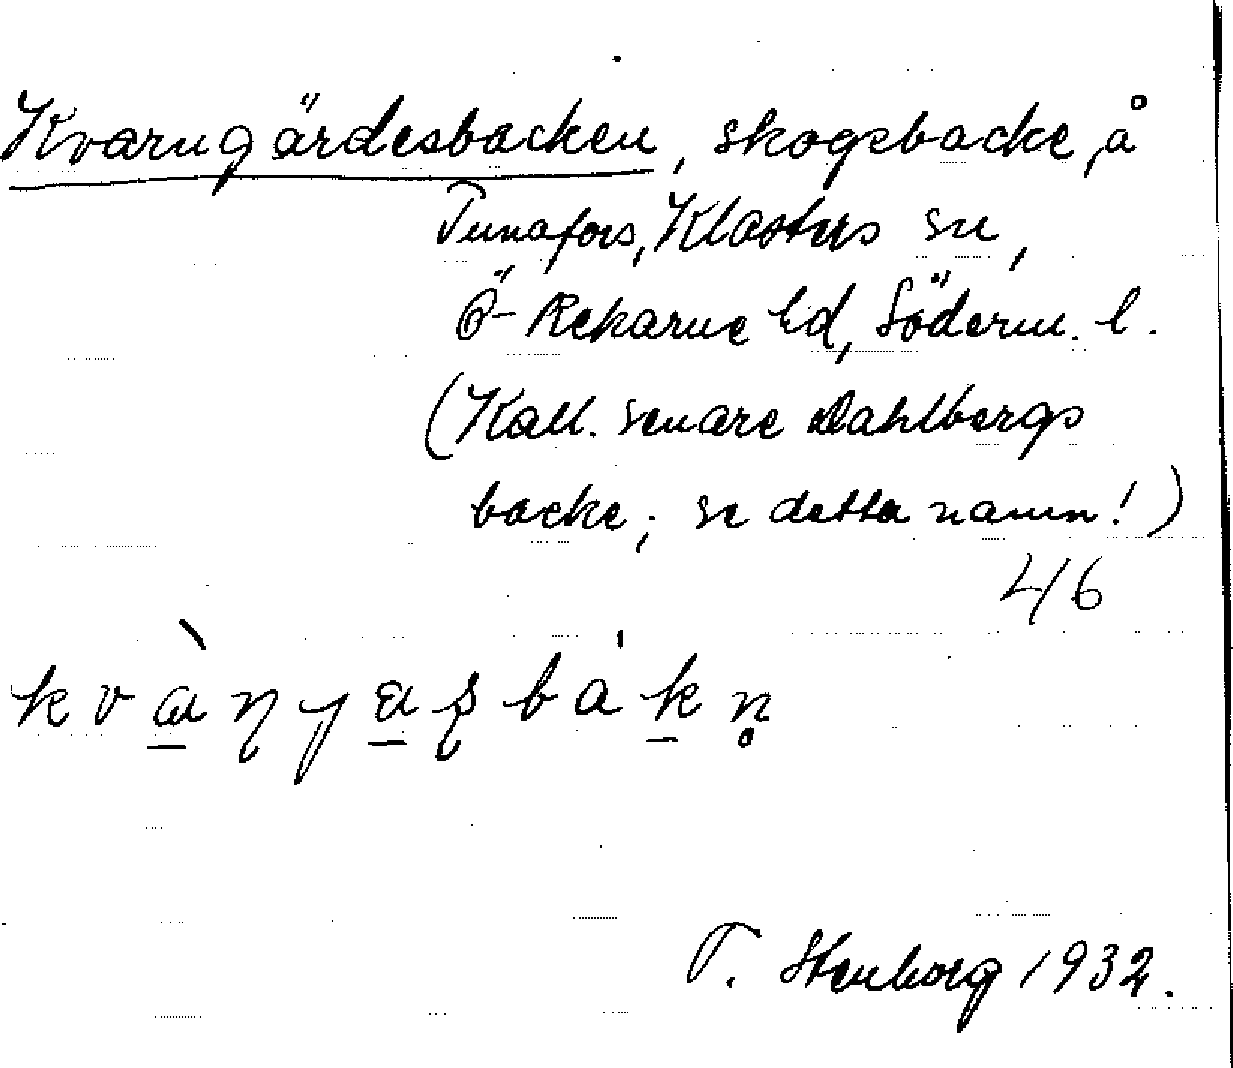 Kvarngärdesbacken, skogsbacke, å
Tunafors, Klosters sn,
Ö- Rekarne hd, Söderm. l.
(Kall. senare Dahlbergs
backe; se detta namn!)
4/6
T. Stenborg 1932.